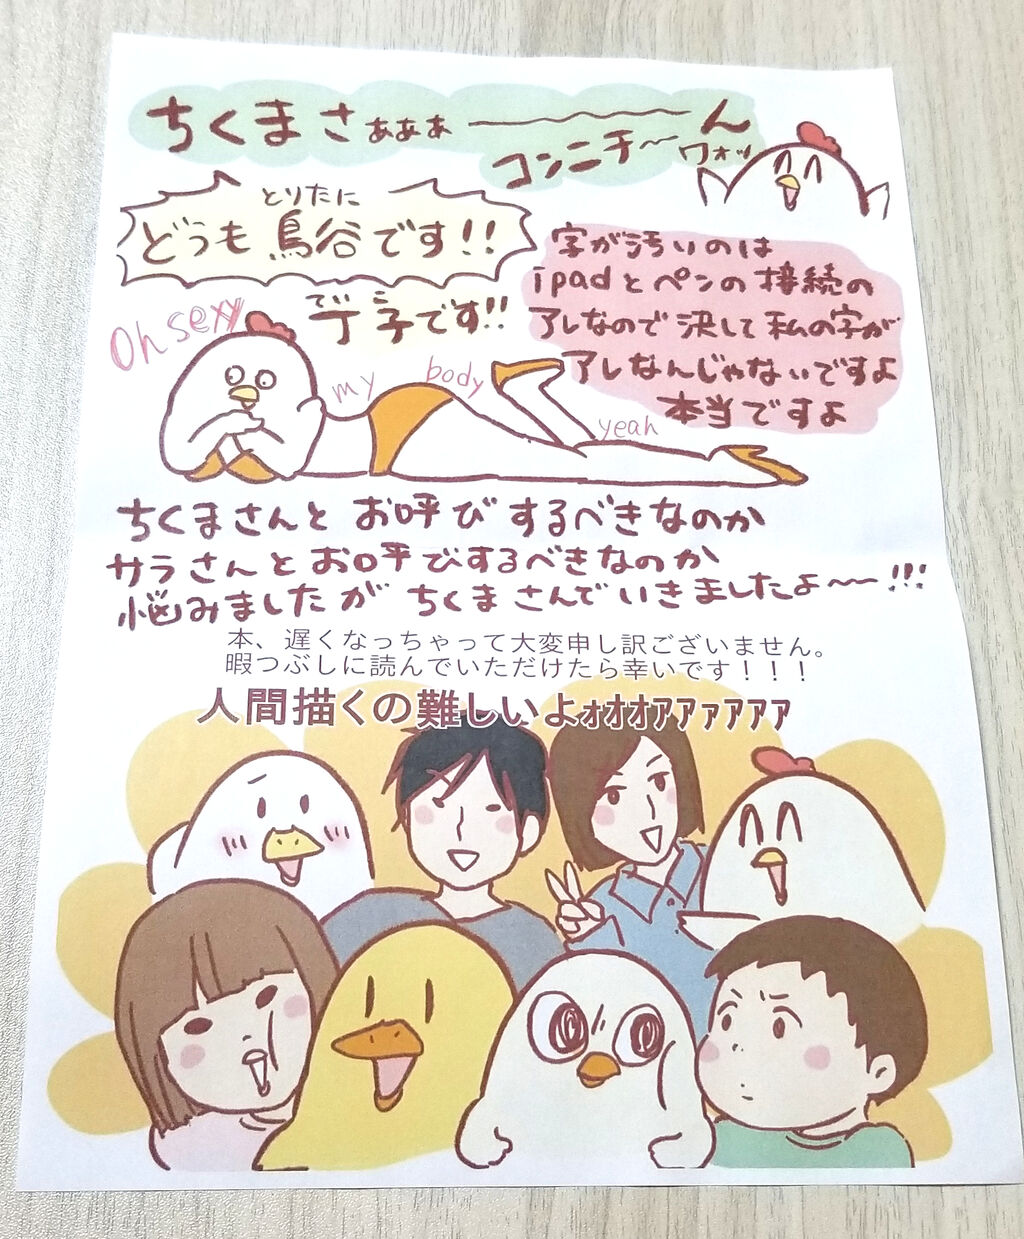 ちくまさぁぁぁ〜ん
コンニチ〜ワォッ
とりたに
どうも鳥谷です!!
でこ
丁子です!!
字が汚いのは
ipadとペンの接続の
アレなので決して私の字が
アレなんじゃないですよ
本当ですよ
Oh sexy
my body
yeah
ちくまさんとお呼びするべきなのか
サラさんとお呼びするべきなのか
悩みましたがちくまさんでいきましたよ〜〜!!!
本、遅くなっちゃって大変申し訳ございません。
暇つぶしに読んでいただけたら幸いです!!!
人間描くの難しいよォオオオァアァアアア